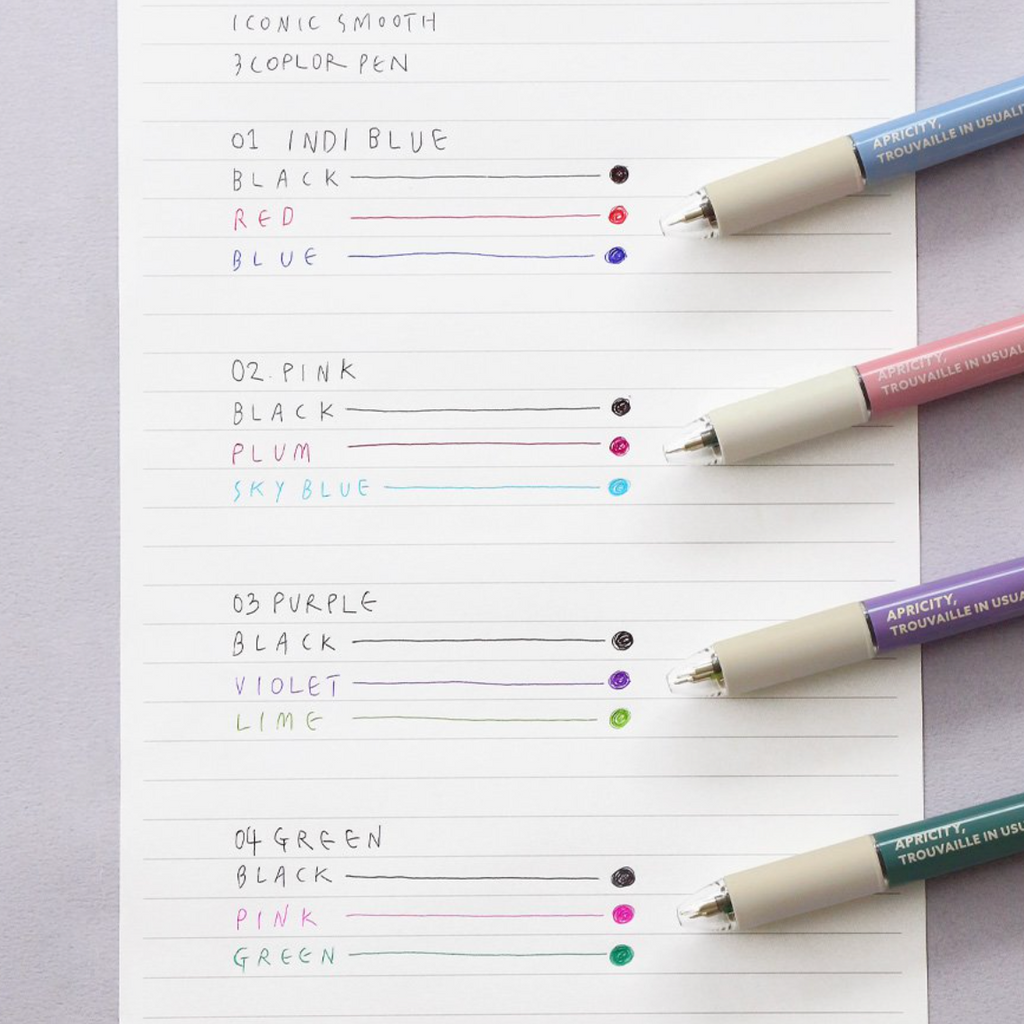 ICONIC SMOOTH
3COPLOR PEN
01 INDI BLUE
BLACK
RED
BLUE
APRICITY,
TROUVAILLE IN USUALI
02. PINK
BLACK
PLUM
SKY BLUE
APRICITY,
TROUVAILLE IN USUAL
03 PURPLE
BLACK
VIOLET
LIME
APRICITY,
TROUVAILLE IN USUA
04 GREEN
BLACK
PINK
GREEN
APRICITY,
TROUVAILLE IN USU